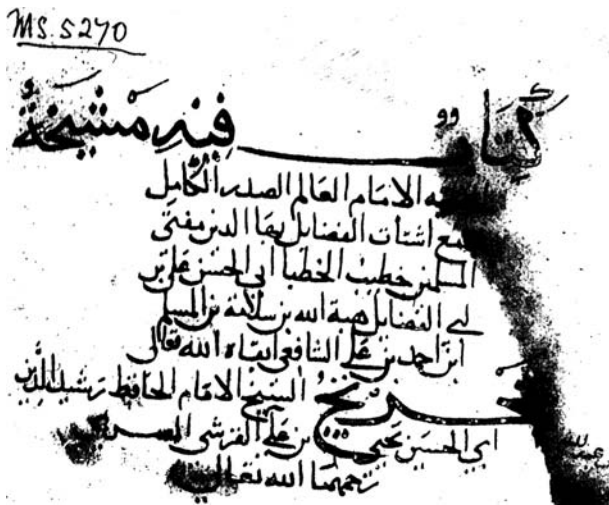 MS. 5270
كتاب فيه مشيخة
الامام العالم الصدر الكامل
اشتات الفضايل بها الدين مفتى
المسلمين خطيب الخطبا ابى الحسن على بن
ابى الفضايل هبة الله بن سلامة بن المسلم
ابن احمد بن على الشافعى ابقاه الله تعالى
تخريج الشيخ الامام الحافظ رشيد الدين
ابى الحسين يحيى بن على القرشى
رحمهما الله تعالى